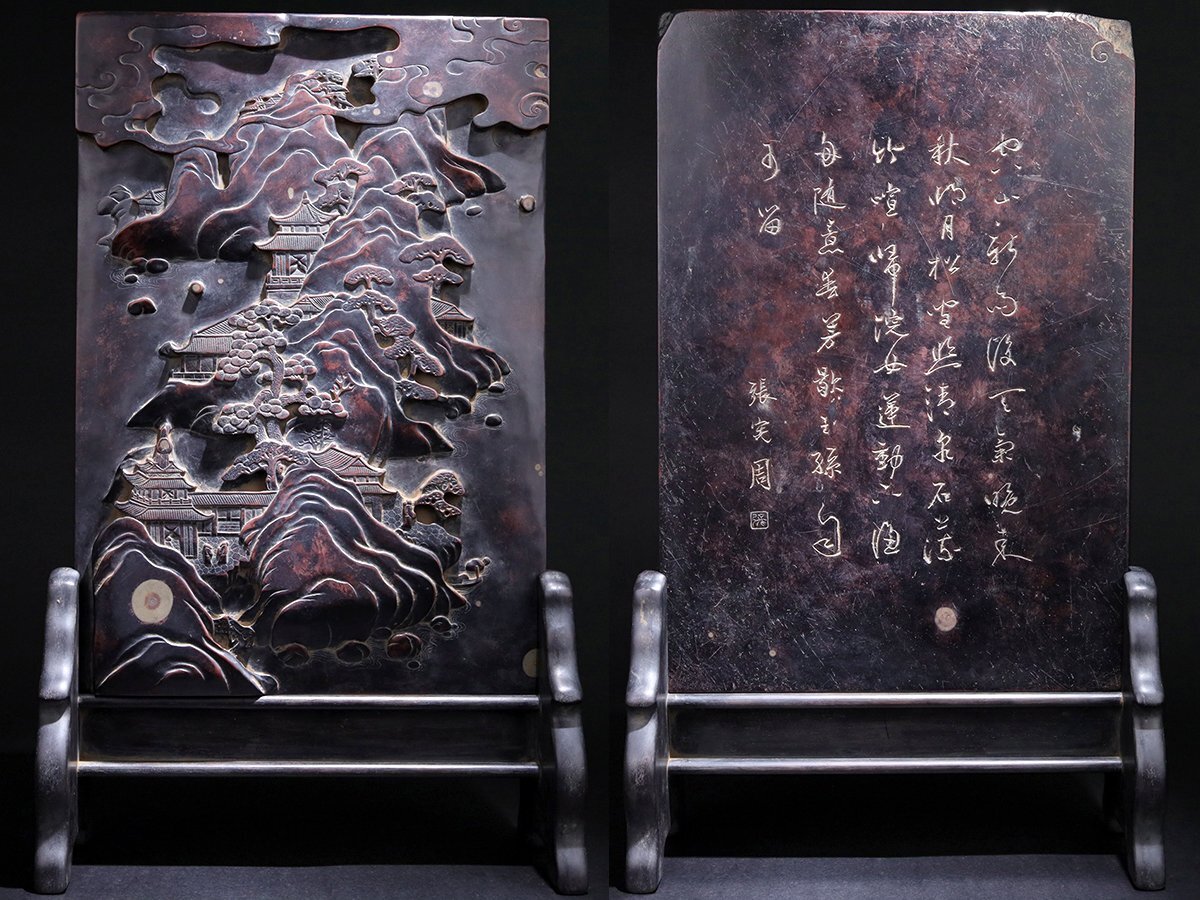 空山新雨後天氣晚來
秋明月松間照清泉石上流
竹喧歸浣女蓮動下漁
舟隨意春芳歇王孫自
可留
張周